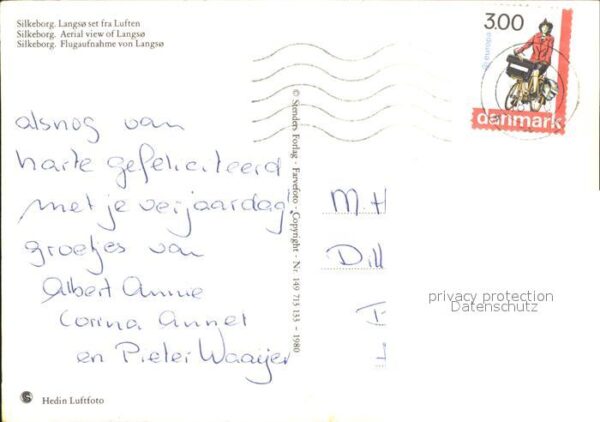 Silkeborg. Langsø set fra Luften
Silkeborg. Aerial view of Langsø
Silkeborg. Flugaufnahme von Langsø
alsnog van
harte gefeliciteerd
met je verjaardag
groetjes van
Albert Annie
Corina Annet
en Pieter Waaijer
Hedin Luftfoto
© Stenders Forlag - Farvefoto - Copyright - Nr 149 713 133 - 1980
3.00
europa
danmark
M.H
Dill
privacy protection
Datenschutz